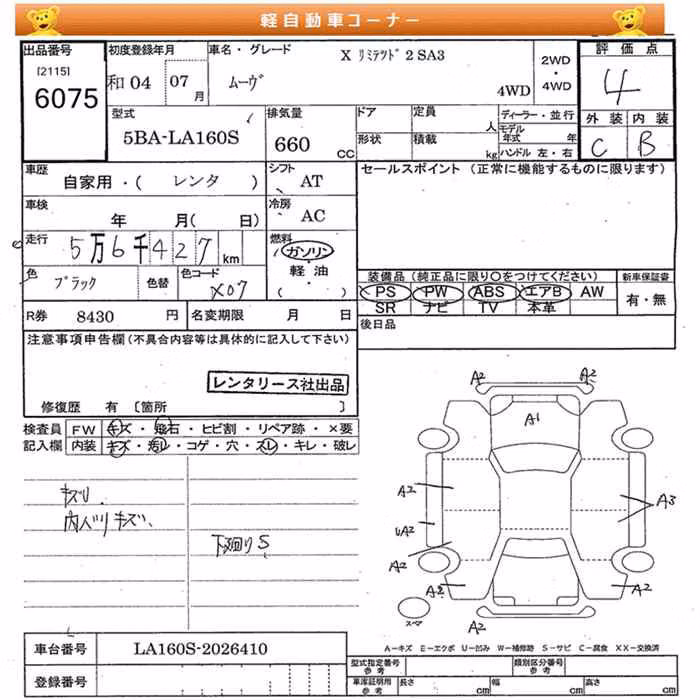 軽自動車コーナー
出品番号
[2115]
6075
初度登録年月
和04 07月
車名・グレード
X リミテッド2 SA3
ムーヴ
4WD
2WD
・
4WD
評価点
4
外装 内装
C B
型式
5BA-LA160S
排気量
660 CC
ドア
定員
人
形状
積載
kg
ディーラー・並行
モデル年式 年
ハンドル 左・右
車歴
自家用・( レンタ )
シフト
AT
車検
年 月( 日)
冷房
AC
走行
5万6千427 km
燃料
ガソリン
軽・油
( ・ )
色
ブラック
色替
色コード
X07
R券 8430 円
名変期限 月 日
セールスポイント (正常に機能するものに限ります)
装備品(純正品に限り○をつけてください)
新車保証書
PS PW ABS エアB AW
有・無
SR ナビ TV 本革
後日品
注意事項申告欄(不具合内容等は具体的に記入して下さい)
レンタリース社出品
修復歴 有 〔箇所 〕
検査員
記入欄
FW キズ・飛石・ヒビ割・リペア跡・×要
内装 キズ・汚レ・コゲ・穴・スレ・キレ・破レ
キズU
内ハリキズ、
下廻りS
A2
A2
A1
A2
A3
UA2
A2
A2
A2
スペア
A2
A－キズ E－エクボ U－凹み W－補修跡 S－サビ C－腐食 XX－交換済
車台番号 LA160S-2026410
登録番号
型式指定番号
参考
類別区分番号
参考
車庫証明用
参考
長さ cm
幅 cm
高さ cm